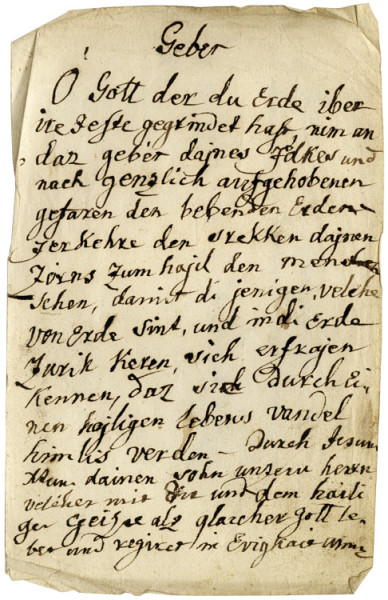 Geber
O Gott der du Erde iber
ire feste gegrindet hast, nim an
daz geber dajnes folkes und
nach genzlich aufgehobenen
gefaren den bebenden Erden
ferkehre den srekken dajnen
Zorns Zum hajl den menschen
schen, damit di jenigen, velche
von Erde sint, und in di Erde
Zurik Keren, sich erfrajen
Kennen, daz sich durch Ei-
nen hajligen lebens vandel
himlis verden - durch Jesum
dainen sohn unzern herrn
velcher mit dir und dem haili
gen Geiste alz glaicher Gott le-
bet und regiret in Evigkait